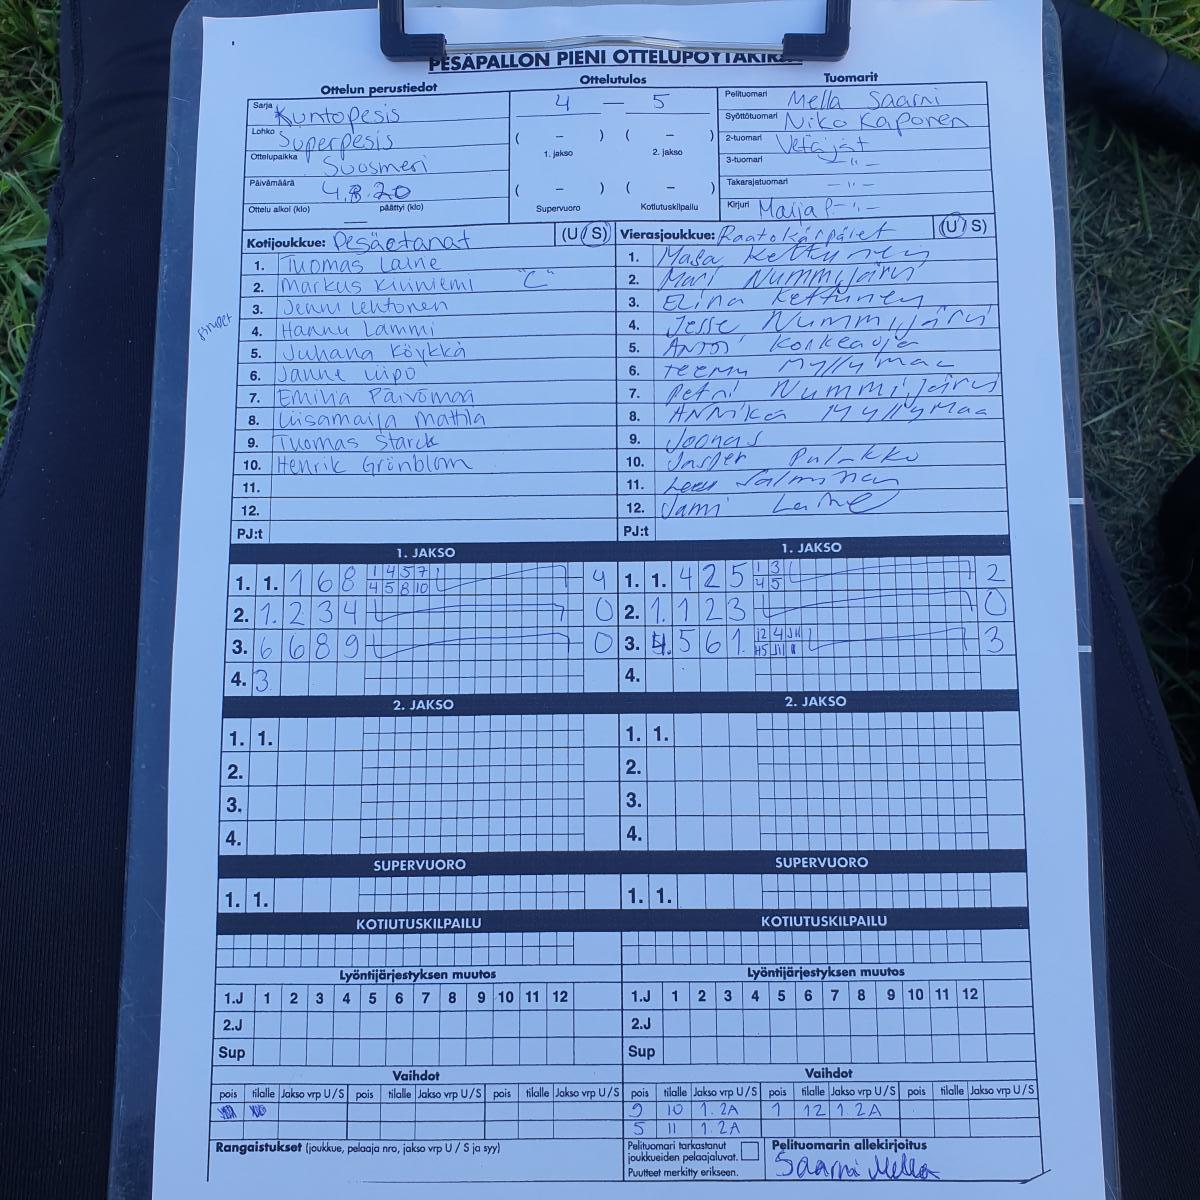 PESÄPALLON PIENI OTTELUPÖYTÄKIRJA
Ottelun perustiedot
Ottelutulos
Tuomarit
Sarja Kuntopesis
Lohko Superpesis
Ottelupaikka Suosmeri
Päivämäärä 4.8.20
Ottelu alkoi (klo) — päättyi (klo)
4 — 5
( – ) ( – )
1. jakso 2. jakso
( – ) ( – )
Supervuoro Kotiutuskilpailu
Pelituomari Mella Saarni
Syöttötuomari Niko Kaponen
2-tuomari Vetäjät
3-tuomari -"-
Takarajatuomari -"-
Kirjuri Maija P. -"-
Kotijoukkue: Pesäotanat (U / S)
1. Tuomas Laine
2. Markus Kiviniemi "C"
3. Jenni Lehtonen
4. Hannu Lammi
5. Juhana Köykkä
6. Janne Uipo
7. Emilia Päivömaa
8. Liisamaija Mattila
9. Tuomas Starck
10. Henrik Grönblom
11.
12.
PJ:t
Vierasjoukkue: Raatokärpäset (U / S)
1. Masa Kettunen
2. Mari Nummijärvi
3. Elina Kettunen
4. Jesse Nummijärvi
5. Antti Korkeaoja
6. Teemu Myllymaa
7. Petri Nummijärvi
8. Annika Myllymaa
9. Joonas
10. Jasper Pulakko
11. Salminen
12. Jami Laine
PJ:t
1. JAKSO
1. 1. 1 6 8 1 4 5 7 4
4 5 8 10
2. 1. 2 3 4 0
3. 6 6 8 9 0
4. 3
1. JAKSO
1. 1. 4 2 5 1 3 2
4 5
2. 1. 1 2 3 0
3. 4. 5 6 1. 12 4 3
4.
2. JAKSO
1. 1.
2.
3.
4.
2. JAKSO
1. 1.
2.
3.
4.
SUPERVUORO
1. 1.
SUPERVUORO
1. 1.
KOTIUTUSKILPAILU
KOTIUTUSKILPAILU
Lyöntijärjestyksen muutos
1.J 1 2 3 4 5 6 7 8 9 10 11 12
2.J
Sup
Lyöntijärjestyksen muutos
1.J 1 2 3 4 5 6 7 8 9 10 11 12
2.J
Sup
Vaihdot
pois tilalle Jakso vrp U / S pois tilalle Jakso vrp U / S pois tilalle Jakso vrp U / S
Vaihdot
pois tilalle Jakso vrp U / S pois tilalle Jakso vrp U / S pois tilalle Jakso vrp U / S
9 10 1.2A 1 12 1.2A
5 11 1.2A
Rangaistukset (joukkue, pelaaja nro, jakso vrp U / S ja syy)
Pelituomari tarkastanut
joukkueiden pelaajaluvat.
Puutteet merkitty erikseen.
Pelituomarin allekirjoitus
Saarni Mella